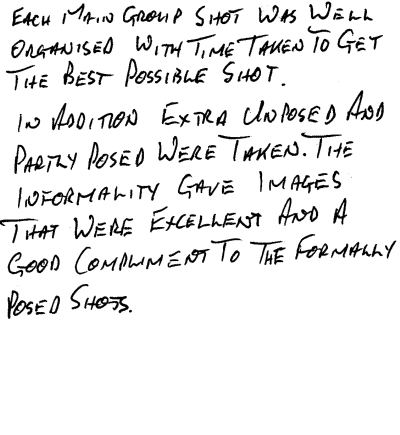 EACH MAIN GROUP SHOT WAS WELL
ORGANISED WITH TIME TAKEN TO GET
THE BEST POSSIBLE SHOT.
IN ADDITION EXTRA UNPOSED AND
PARTLY POSED WERE TAKEN. THE
INFORMALITY GAVE IMAGES
THAT WERE EXCELLENT AND A
GOOD COMPLIMENT TO THE FORMALLY
POSED SHOTS.